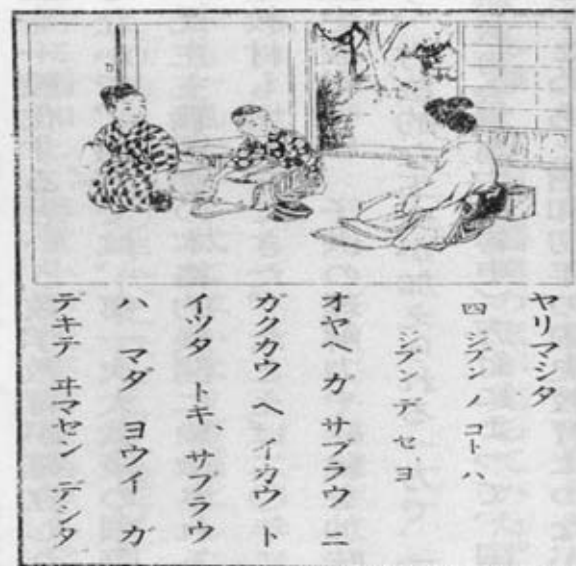 ヤリマシタ
四 ジブン ノ コト ハ
ジブン デ セ、ヨ
オヤヘ ガ サブラウ ニ
ガクカウ ヘ イカウ ト
イツタ トキ、サブラウ
ハ マダ ヨウイ ガ
デキテ ヰマセン デシタ